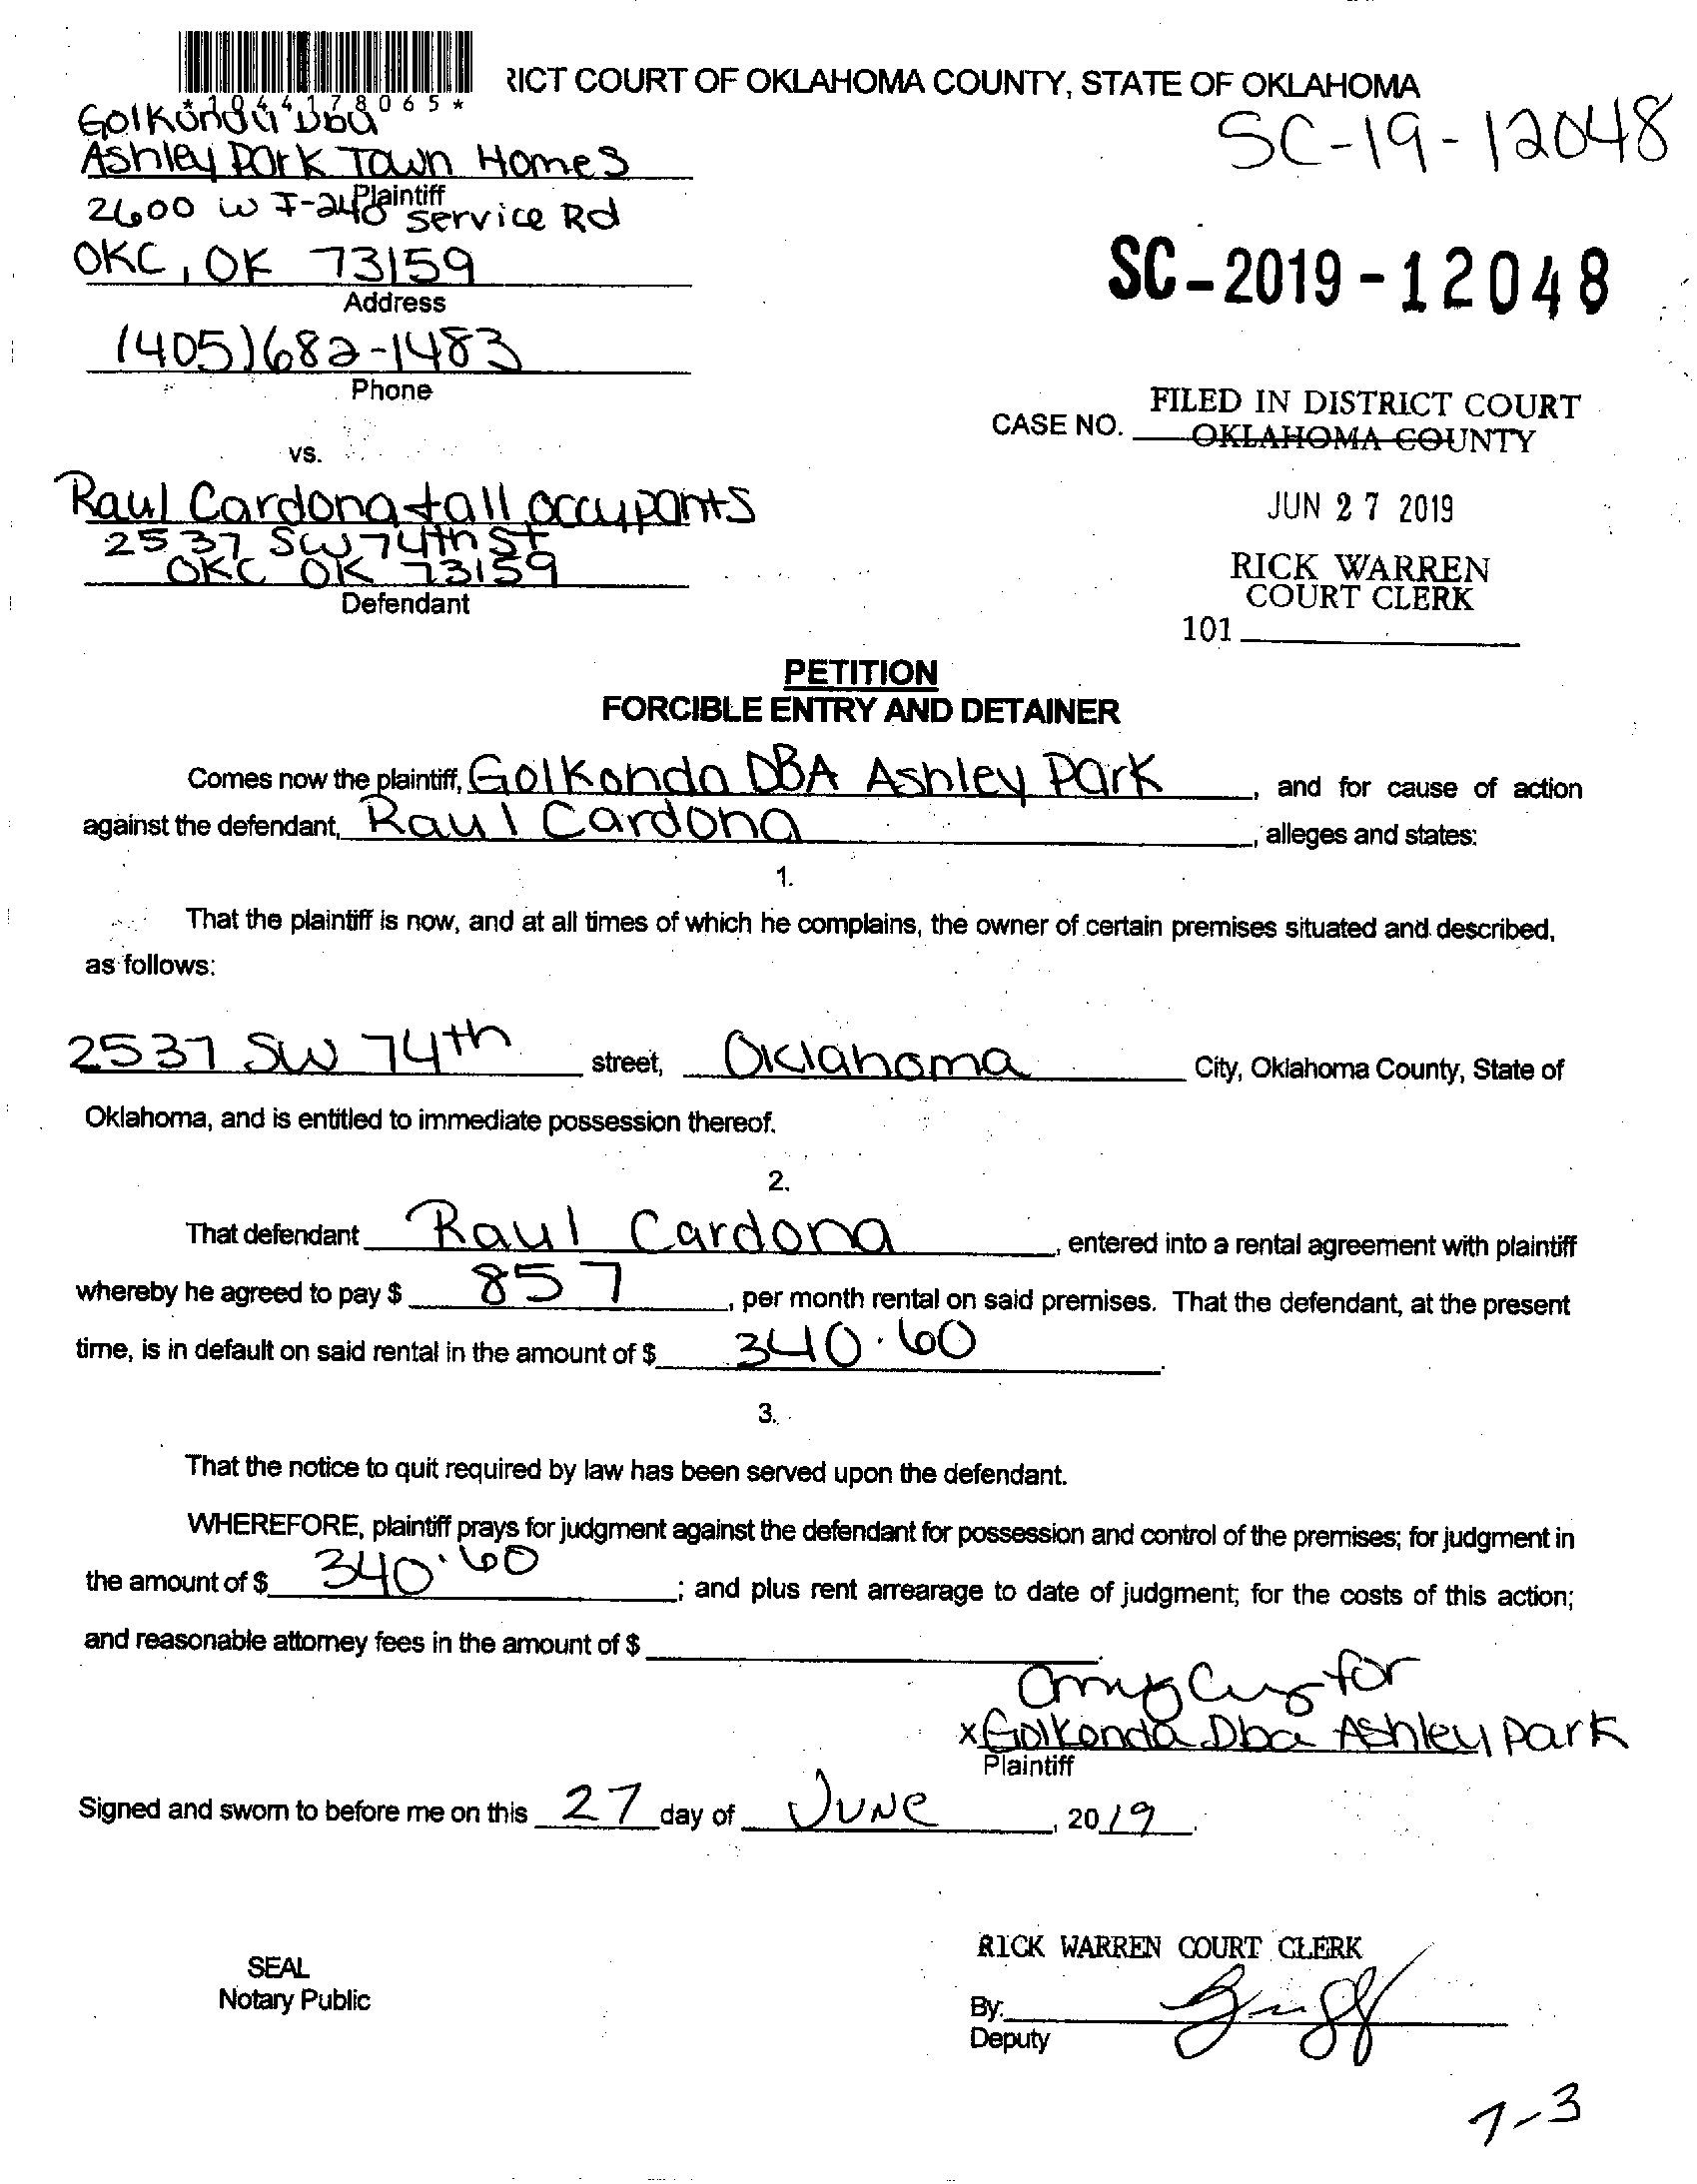 *1044178065*
RICT COURT OF OKLAHOMA COUNTY, STATE OF OKLAHOMA
Golkonda Dba
Ashley Park Town Homes
Plaintiff
2600 W I-240 Service Rd
OKC, OK 73159
Address
(405)682-1483
Phone
SC-19-12048
SC-2019-12048
vs.
CASE NO.
FILED IN DISTRICT COURT
OKLAHOMA COUNTY
JUN 27 2019
RICK WARREN
COURT CLERK
101
Raul Cardona + all occupants
2537 SW 74th St
OKC OK 73159
Defendant
PETITION
FORCIBLE ENTRY AND DETAINER
Comes now the plaintiff, Golkonda DBA Ashley Park, and for cause of action
against the defendant, Raul Cardona, alleges and states:
1.
That the plaintiff is now, and at all times of which he complains, the owner of certain premises situated and described,
as follows:
2537 SW 74th street, Oklahoma City, Oklahoma County, State of
Oklahoma, and is entitled to immediate possession thereof.
2.
That defendant Raul Cardona, entered into a rental agreement with plaintiff
whereby he agreed to pay $ 857, per month rental on said premises. That the defendant, at the present
time, is in default on said rental in the amount of $ 340.60.
3.
That the notice to quit required by law has been served upon the defendant.
WHEREFORE, plaintiff prays for judgment against the defendant for possession and control of the premises; for judgment in
the amount of $ 340.60; and plus rent arrearage to date of judgment; for the costs of this action;
and reasonable attorney fees in the amount of $ .
for
x Golkonda Dba Ashley Park
Plaintiff
Signed and sworn to before me on this 27 day of June, 2019.
SEAL
Notary Public
RICK WARREN COURT CLERK
By:
Deputy
7-3